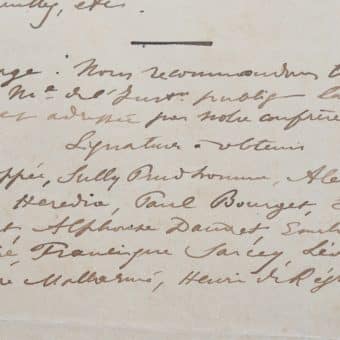 etc.
nge : Nous recommandons t
Mre de l'Instron publiq
est adressée par notre confrère
Signatures obtenues
ppée, Sully Prudhomme, Ale
Heredia, Paul Bourget,
t Alphonse Daudet
Francisque Sarcey, Léo
ne Mallarmé, Henri de Rég